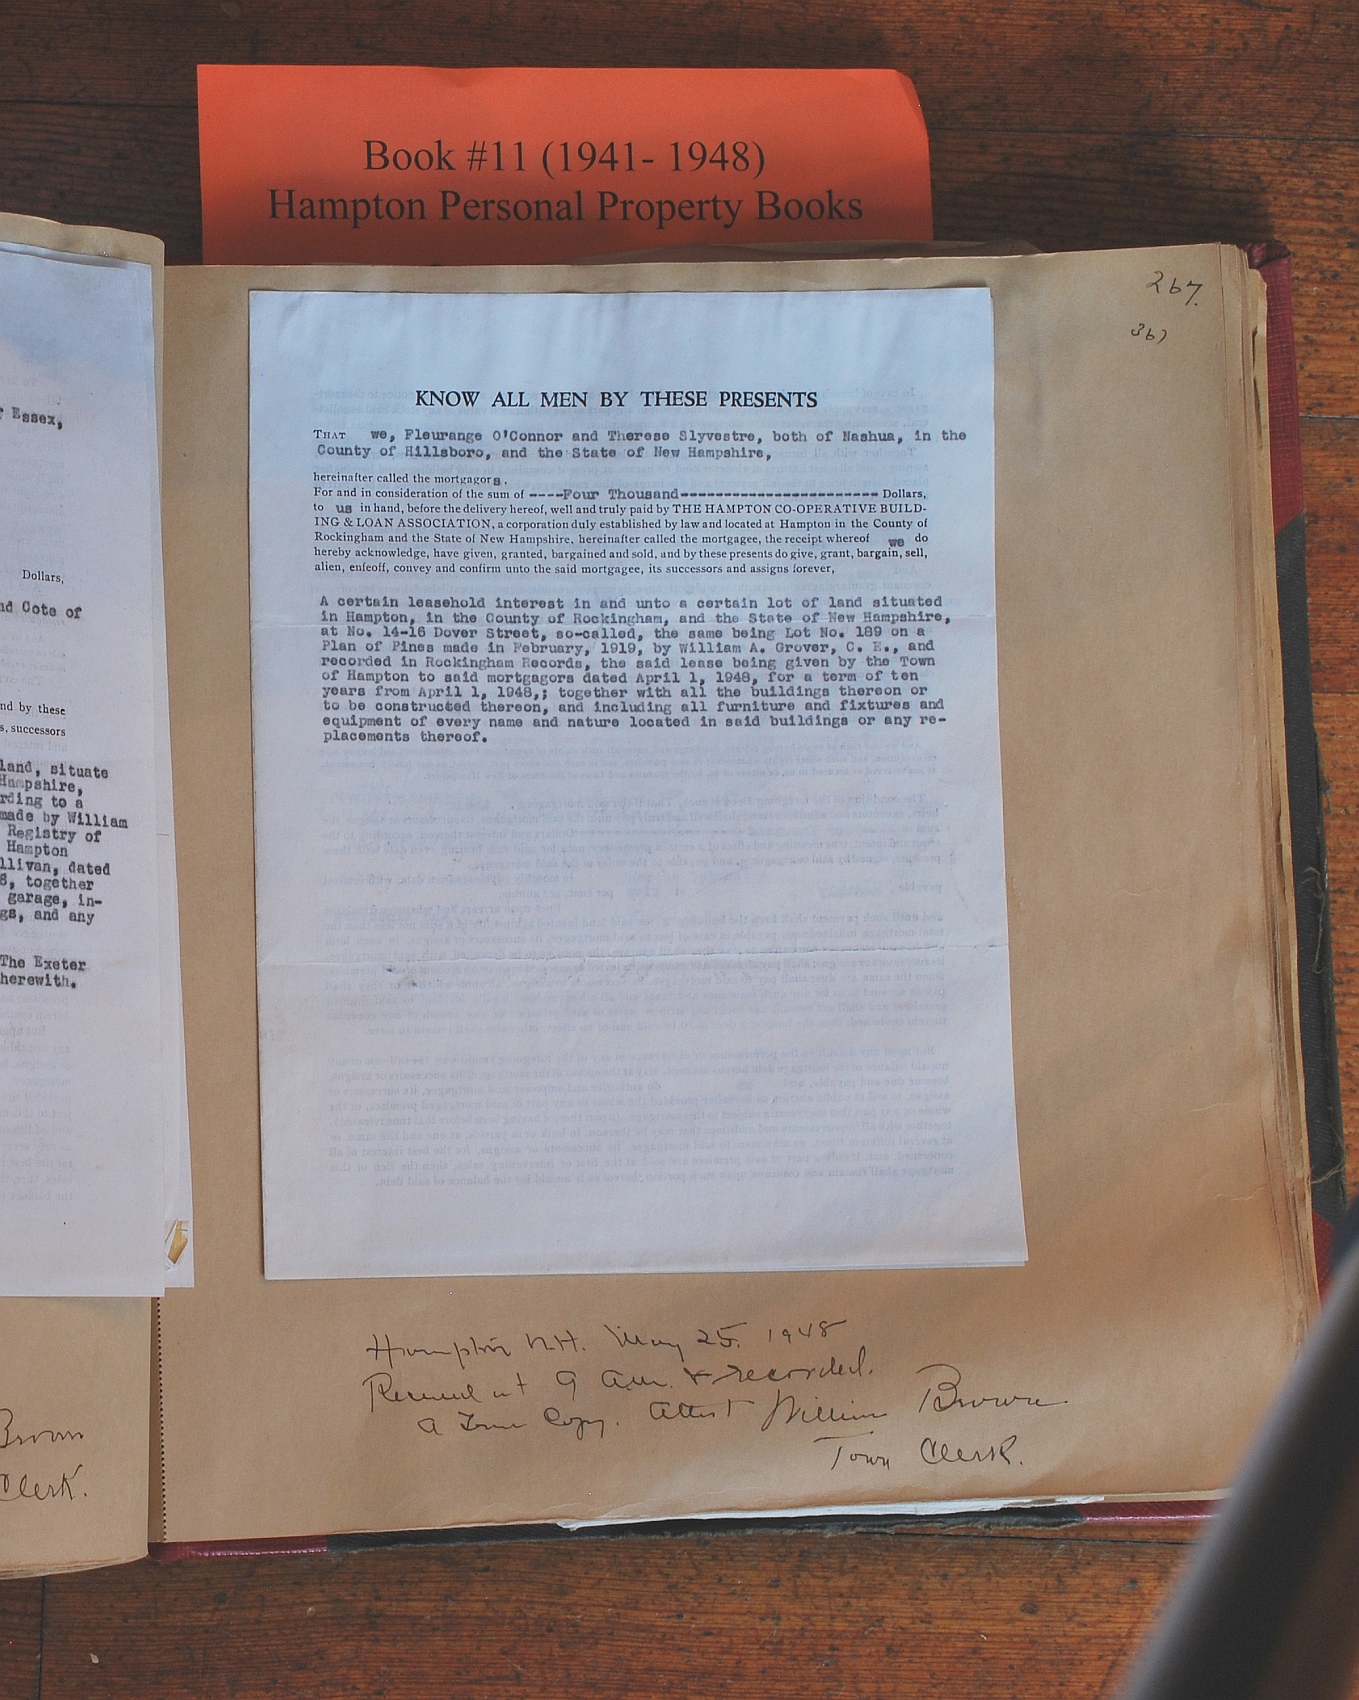 Book #11 (1941- 1948)
Hampton Personal Property Books
267.
367
r Essex,
Dollars,
nd Cote of
nd by these
s, successors
land, situate
Hampshire,
rding to a
made by William
Registry of
Hampton
llivan, dated
8, together
garage, in-
gs, and any
The Exeter
herewith.
Brown
Clerk.
KNOW ALL MEN BY THESE PRESENTS
THAT we, Fleurange O'Connor and Therese Slyvestre, both of Nashua, in the
County of Hillsboro, and the State of New Hampshire,
hereinafter called the mortgagors.
For and in consideration of the sum of ----Four Thousand----------------------- Dollars,
to us in hand, before the delivery hereof, well and truly paid by THE HAMPTON CO-OPERATIVE BUILD-
ING & LOAN ASSOCIATION, a corporation duly established by law and located at Hampton in the County of
Rockingham and the State of New Hampshire, hereinafter called the mortgagee, the receipt whereof we do
hereby acknowledge, have given, granted, bargained and sold, and by these presents do give, grant, bargain, sell,
alien, enfeoff, convey and confirm unto the said mortgagee, its successors and assigns forever,
A certain leasehold interest in and unto a certain lot of land situated
in Hampton, in the County of Rockingham, and the State of New Hampshire,
at No. 14-16 Dover Street, so-called, the same being Lot No. 189 on a
Plan of Pines made in February, 1919, by William A. Grover, C. E., and
recorded in Rockingham Records, the said lease being given by the Town
of Hampton to said mortgagors dated April 1, 1948, for a term of ten
years from April 1, 1948,; together with all the buildings thereon or
to be constructed thereon, and including all furniture and fixtures and
equipment of every name and nature located in said buildings or any re-
placements thereof.
Hampton N.H. May 25. 1948
Received at 9 a.m. & recorded.
A True Copy. Attest William Brown
Town Clerk.